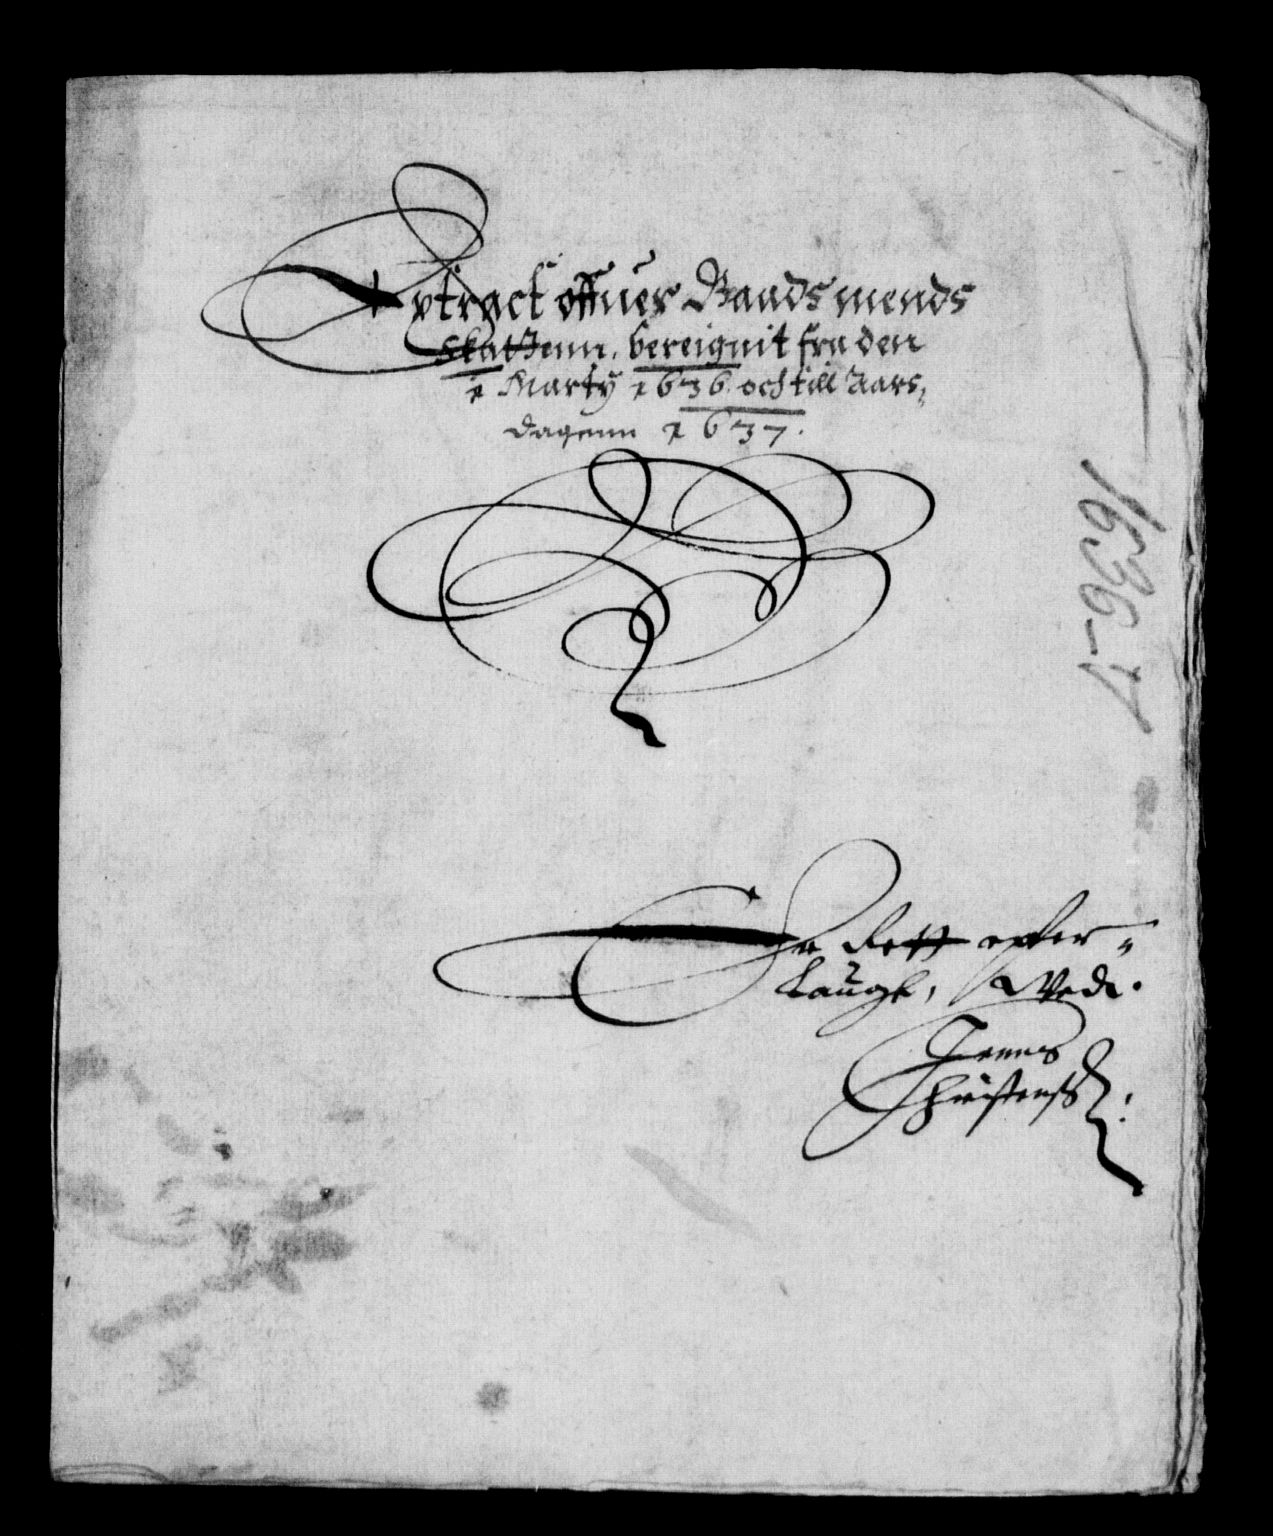 Extract offuer Baadsmends
skattenn, bereignit fra den
1 Marty 1636. och till Aars,
dagenn 1637.
1636-37
Er Rett epter
laugt, Wed.
Jenns
Christenß: